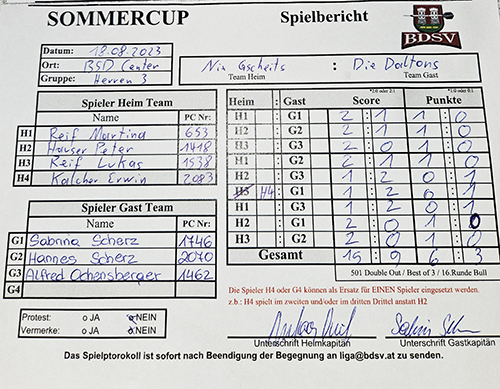 SOMMERCUP Spielbericht
BDSV
Datum: 18.08.2023
Ort: BSD Center
Gruppe: Herren 3
Nix Gscheits : Die Daltons
Team Heim Team Gast
Spieler Heim Team
Name PC Nr:
H1 Reif Martina 653
H2 Hauser Peter 1418
H3 Reif Lukas 1538
H4 Kalcher Erwin 2083
Spieler Gast Team
Name PC Nr:
G1 Sabrina Scherz 1746
G2 Hannes Scherz 2070
G3 Alfred Ochensberger 1462
G4
Protest: o JA o NEIN
Vermerke: o JA o NEIN
*2:0 oder 2:1 *1:0 oder 0:1
Heim : Gast Score Punkte
H1 : G1 2 : 1 1 : 0
H2 : G2 2 : 1 1 : 0
H3 : G3 2 : 0 1 : 0
H1 : G2 2 : 1 1 : 0
H2 : G3 1 : 2 0 : 1
H3 H4 : G1 1 : 2 0 : 1
H1 : G3 1 : 2 0 : 1
H2 : G1 2 : 0 1 : 0
H3 : G2 2 : 0 1 : 0
Gesamt 15 : 9 6 : 3
501 Double Out / Best of 3 / 16.Runde Bull
Die Spieler H4 oder G4 können als Ersatz für EINEN Spieler eingesetzt werden.
z.b.: H4 spielt im zweiten und/oder im dritten Drittel anstatt H2
Unterschrift Heimkapitän Unterschrift Gastkapitän
Das Spielptotokoll ist sofort nach Beendigung der Begegnung an liga@bdsv.at zu senden.